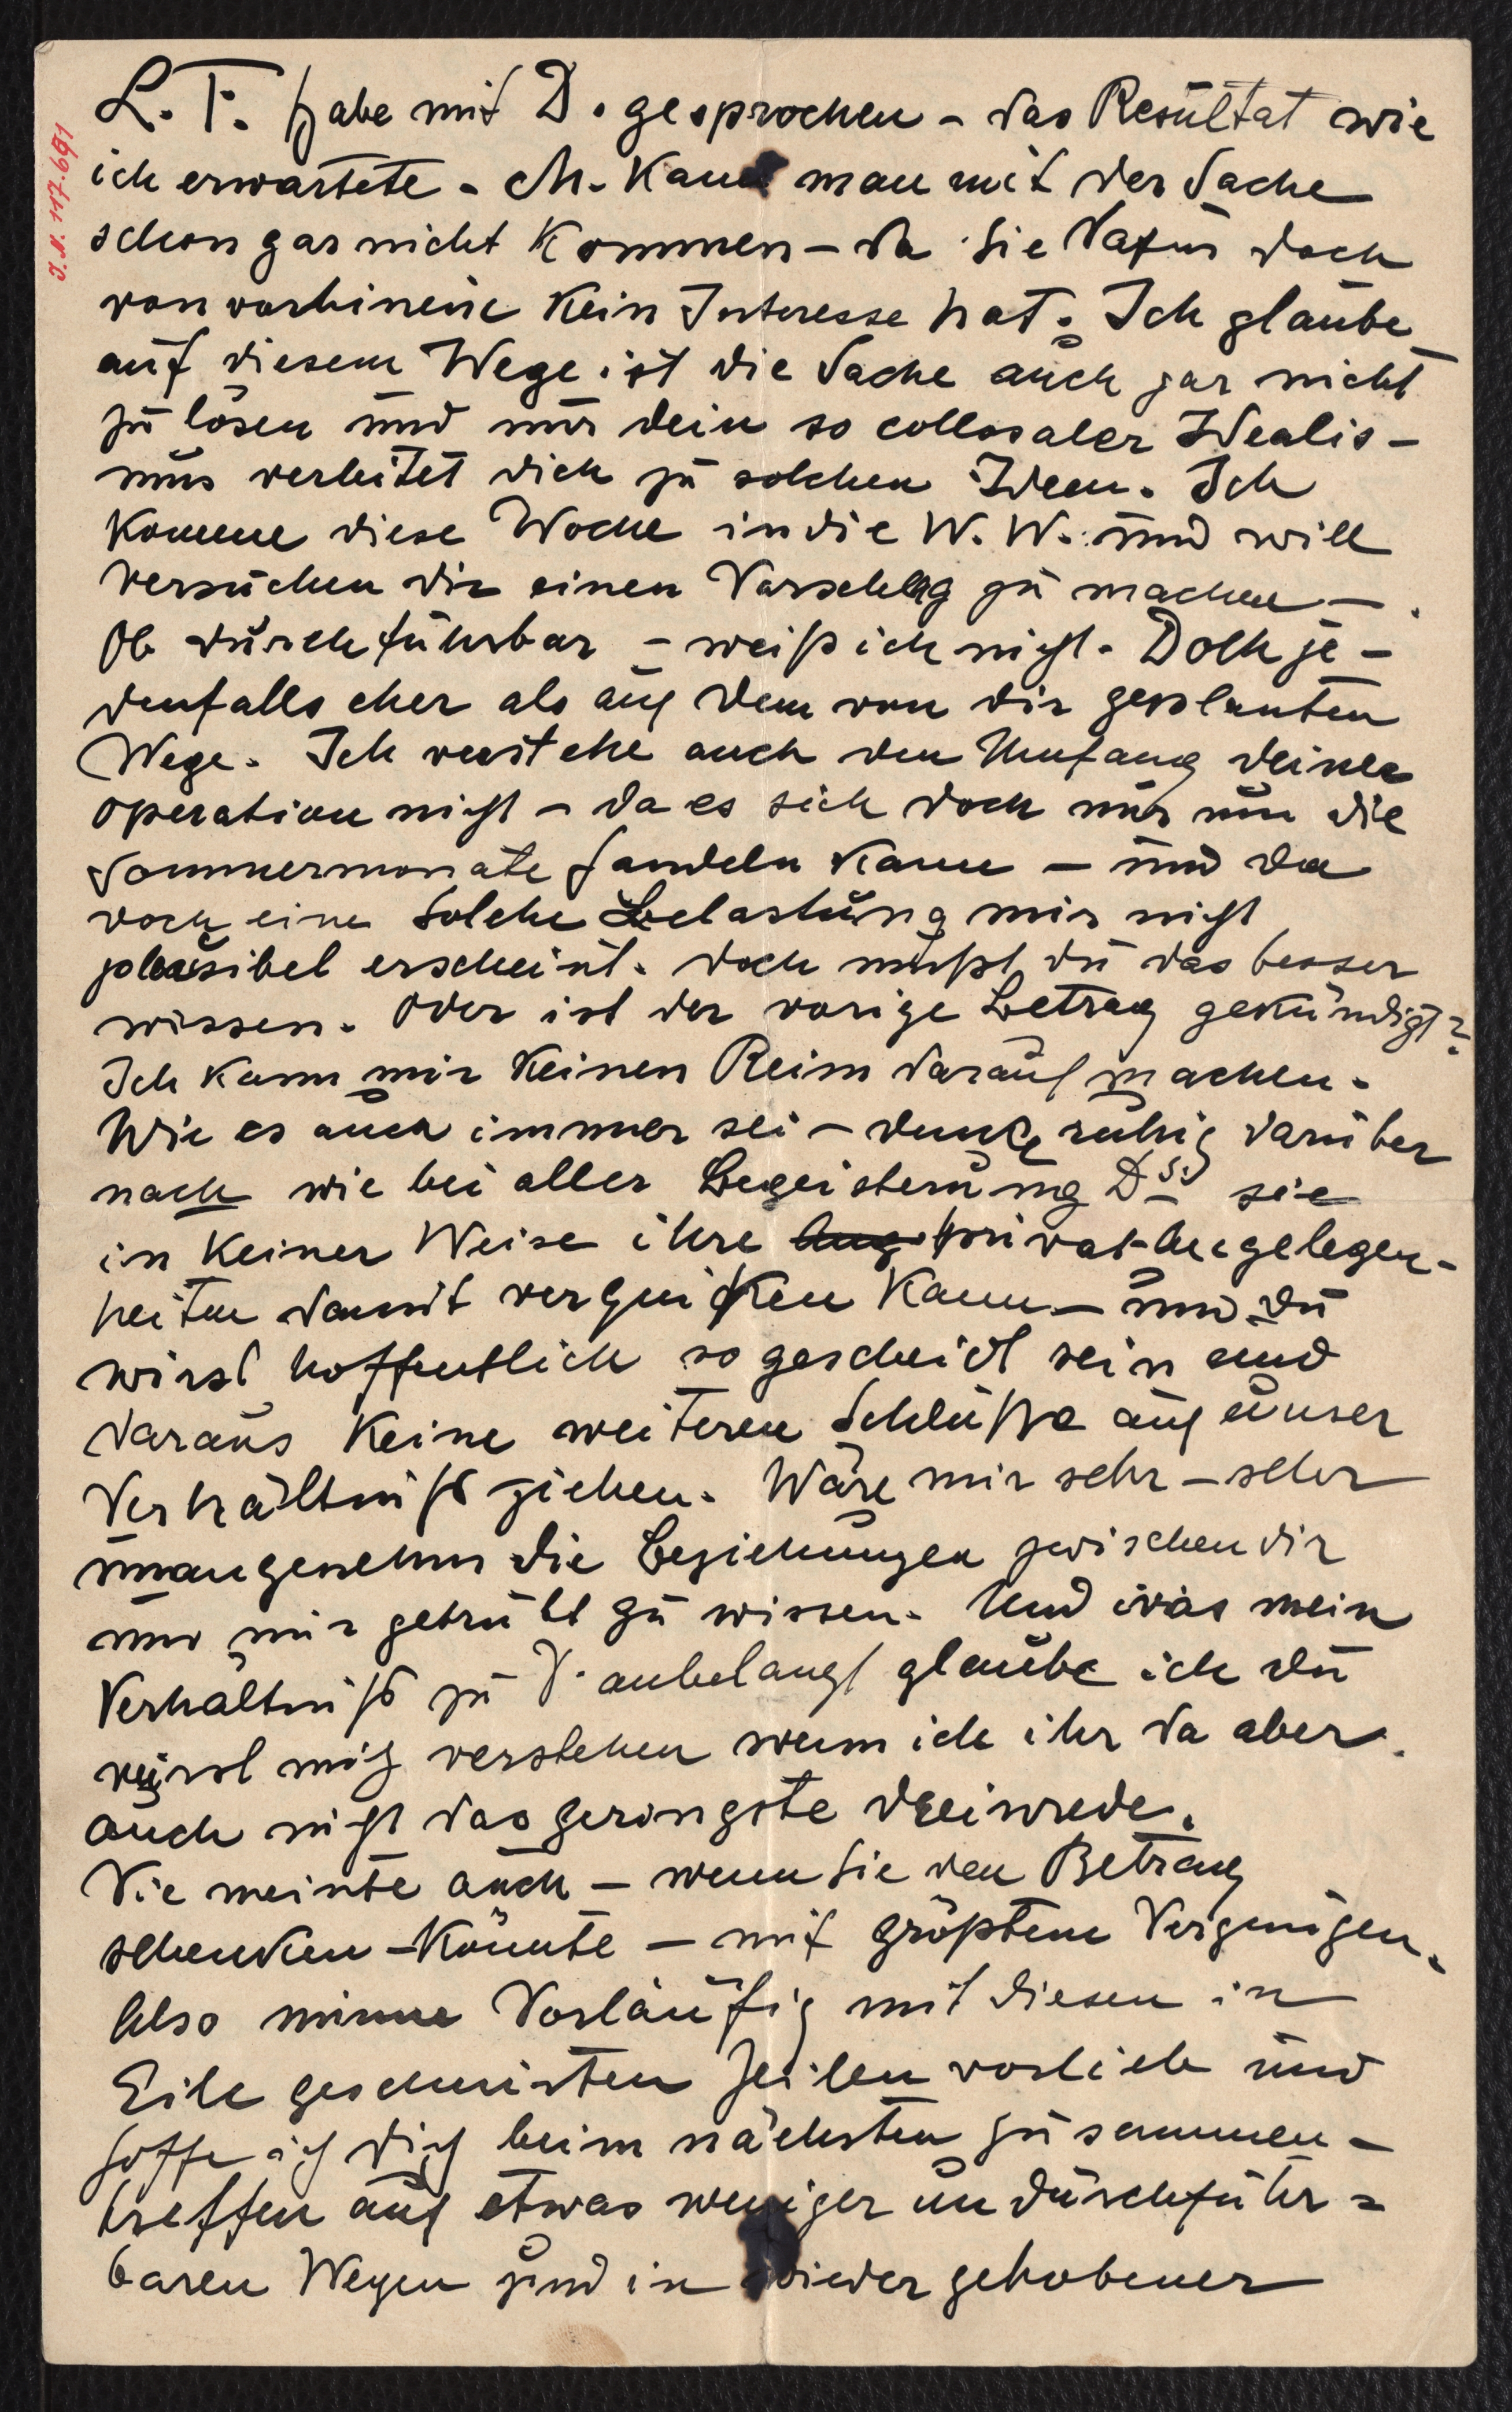 L. F. habe mit D. gesprochen – das Resultat wie
ich erwartete. M. kann man mit der Sache
schon gar nicht kommen – da sie dafür doch
von vorhinein kein Interesse hat. Ich glaube
auf diesem Wege ist die Sache auch gar nicht
zu lösen und nur dein so collosaler Idealis-
mus verleitet dich zu solchen Ideen. Ich
komme diese Woche in die W. W. und will
versuchen dir einen Vorschlag zu machen –
Ob durchführbar – weiß ich nicht. Doch je-
denfalls eher als auf dem von dir geplanten
Wege. Ich verstehe auch den Umfang deiner
Operation nicht – da es sich doch nur um die
Sommermonate handeln kann – und da
doch eine solche Belastung mir nicht
plausibel erscheint. Doch mußt du das besser
wissen. Oder ist der vorige Betrag gekündigt?
Ich kann mir keinen Reim darauf machen.
Wie es auch immer sei – denke ruhig darüber
nach wie bei aller Begeisterung Ds. sie
in keiner Weise ihre Ang privat-Angelegen-
heiten damit verquicken kann – und du
wirst hoffentlich so gescheidt sein und
daraus keine weiteren Schlüße auf unser
Verhältniß ziehen. Wäre mir sehr – sehr
unangenehm die Beziehungen zwischen dir
und mir getrübt zu wissen. Und was mein
Verhältniß zu D. anbelangt glaube ich du
wirst mich verstehen wenn ich ihr da aber
auch nicht das geringste dreinrede.
Sie meinte auch – wenn sie den Betrag
schenken – könnte – mit größtem Vergnügen.
Also nimm Vorläufig mit diesen in
Eile geschmierten Zeilen vorlieb und
hoffe ich dich beim nächsten zusammen-
treffen auf etwas weniger undurchführ=
baren Wegen und in wieder gehobener
J. N. 117.691